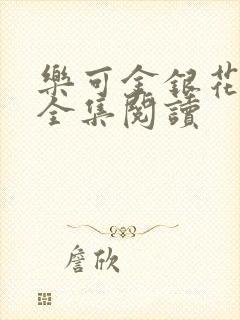 樂可金銀花
全集閱讀
詹欣